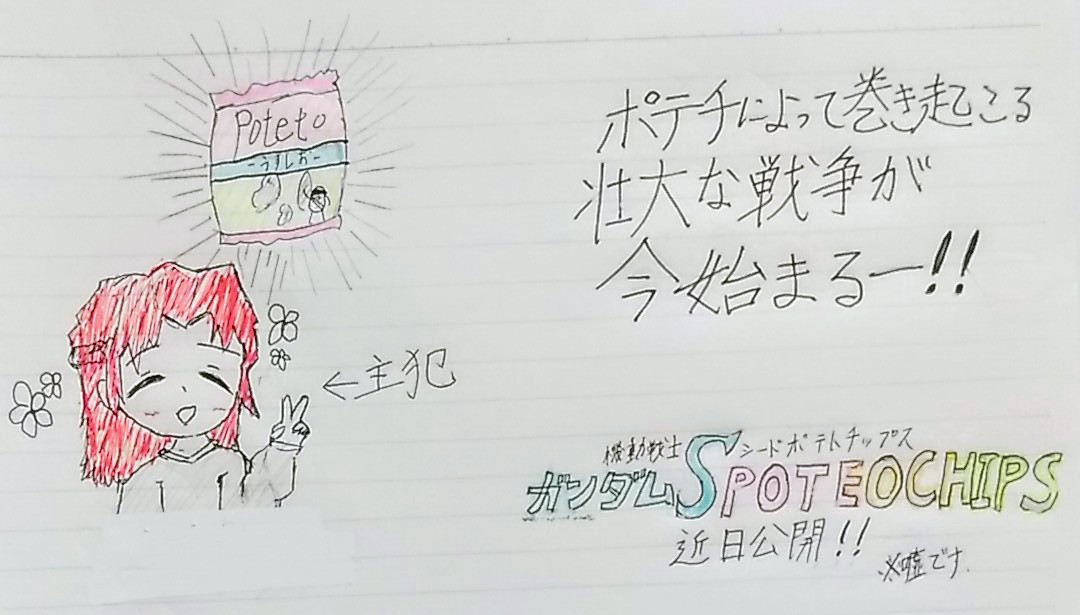 Poteto
-うすしお-
ポテチによって巻き起こる
壮大な戦争が
今始まるー!!
←主犯
機動戦士
シードポテトチップス
ガンダムSPOTEOCHIPS
近日公開!!
※嘘です.